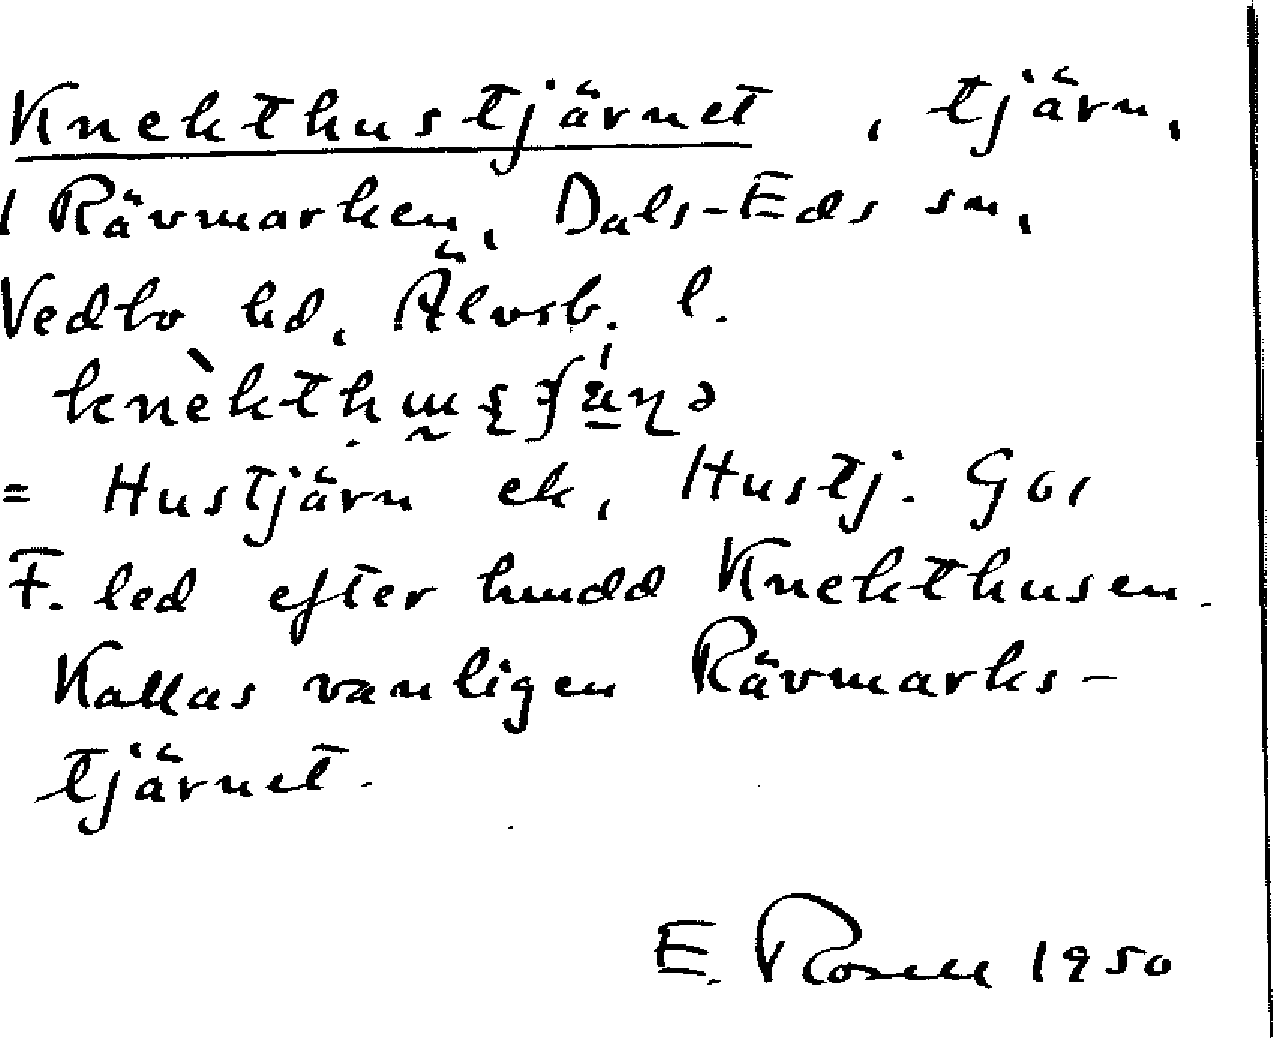 Knekthustjärnet, tjärn,
i Rävmarken, Dals-Eds sn,
Vedbo hd, Älvsb. l.
= Hustjärn ek, Hustj. Gs1
F. led efter hmdd Knekthusen.
Kallas vanligen Rävmarks-
tjärnet.
E. Rosell 1950